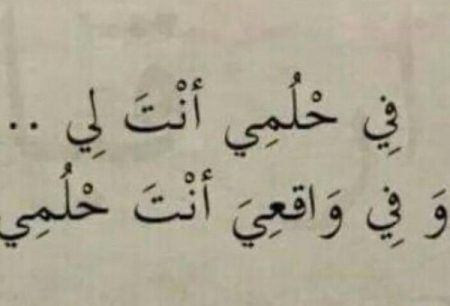 فِي حْلُمِي أنْتَ لِي ..
وَ فِي وَاقعِيَ أنْتَ حْلُمِي